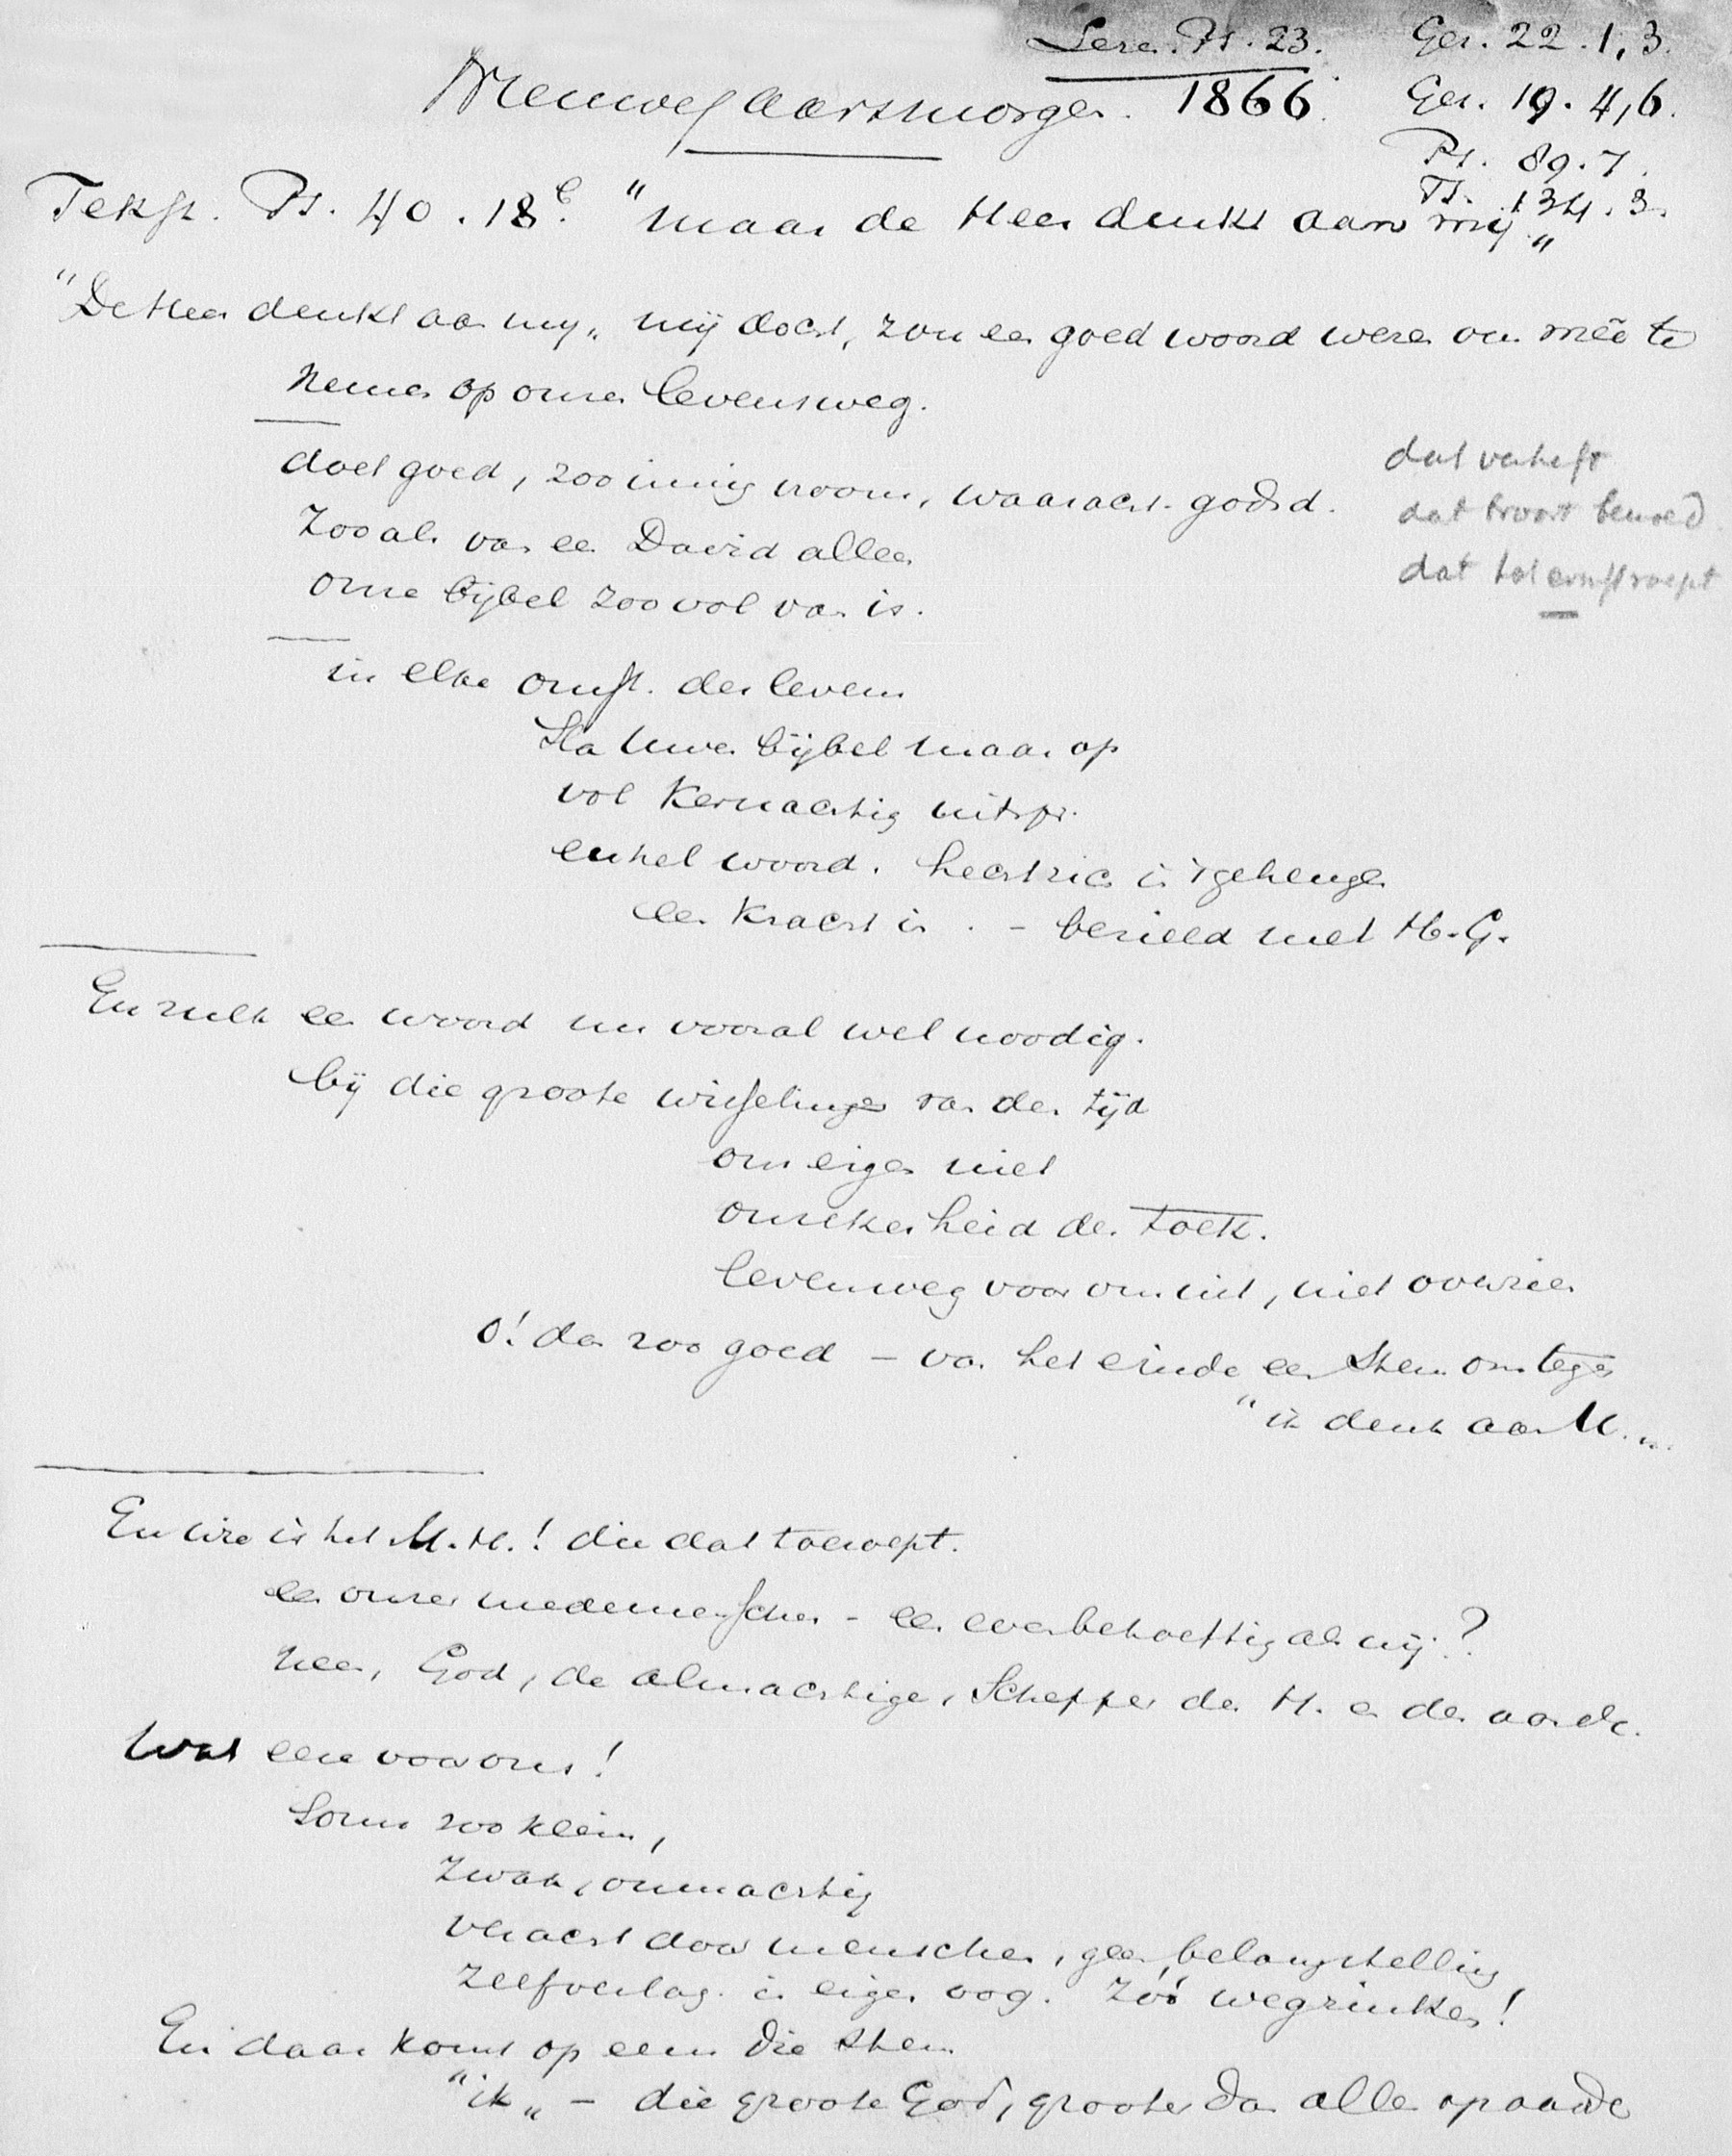 Leze. Ps. 23. Gez. 22. 1, 3.
Nieuwejaarsmorgen. 1866. Gez. 19. 4, 6.
Ps. 89. 7.
Ps. 134. 3.
Tekst. Ps. 40. 18b. "maar de Heer denkt aan mij"
"De Heer denkt aan mij" mij docht, zou een goed woord wezen om meê te
nemen op onzen levensweg.
doet goed, zoo innig vroom, waaracht. godsd.
dat verheft
Zooals van een David alleen
dat troost bemoed.
onze bijbel zoo vol van is.
dat tot ernst roept
in elke omst. des levens
Sla Uwen bijbel maar op
vol kernachtig uitspr.
enkel woord. hecht zich in 't geheugen
een kracht is. - bezield met H. G.
En zulk een woord nu vooral wel noodig.
bij die groote wisselingen van den tijd
ons eigen niet
onzekerheid der toek.
levensweg voor ons uit, niet overzien
o! dan zoo goed - van het einde een stem ons tegen
"ik denk aan U."
En wie is het M. H.! die dat toeroept.
een onzer medemenschen - een even behoeftig als wij?
Neen, God, de almachtige, Schepper des H. en der aarde.
Wat eene voor ons!
Soms zoo klein,
zwak, onmachtig
veracht door menschen, geen belangstelling
Zelfverlag. in eigen oog. Zóó wegzinken!
En daar komt op eens die stem
"ik" - die groote God, grooter dan alle op aarde